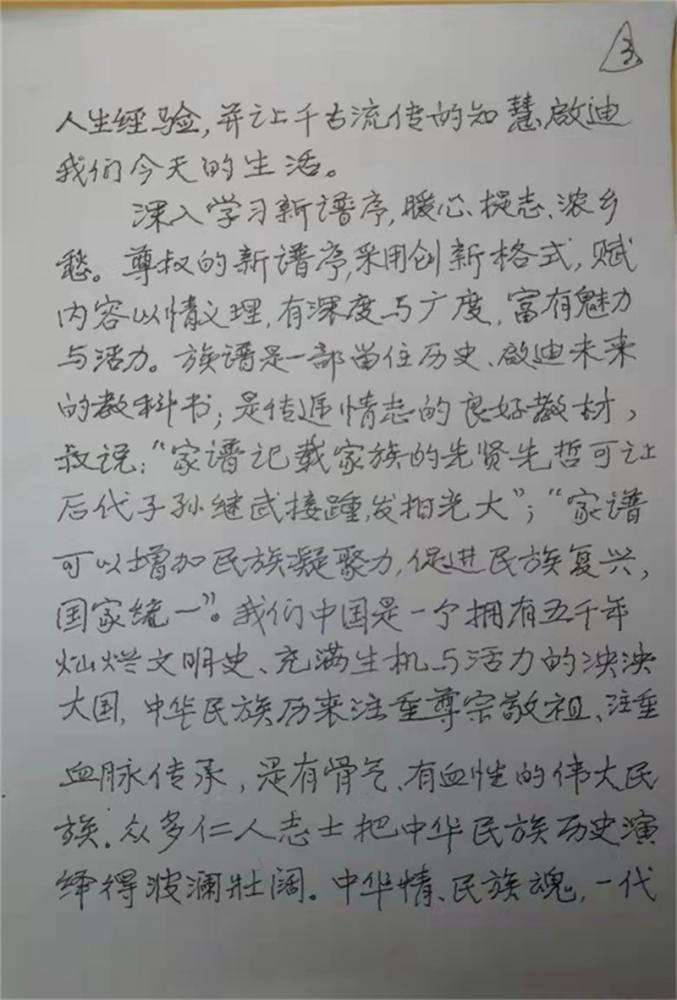 3
人生经验,并让千古流传的知慧啟迪
我们今天的生活。
深入学习新谱序,暖心、提志、浓乡
愁。尊叔的新谱序,采用创新格式,赋
内容以情义理,有深度与广度,富有魅力
与活力。族谱是一部留住历史、啟迪未来
的教科书;是传递情志的良好教材,
叔说:“家谱记载家族的先贤先哲可让
后代子孙继武接踵,发扬光大”;“家谱
可以增加民族凝聚力,促进民族复兴,
国家统一”。我们中国是一个拥有五千年
灿烂文明史、充满生机与活力的泱泱
大国,中华民族历来注重尊宗敬祖、注重
血脉传承,是有骨气、有血性的伟大民
族。众多仁人志士把中华民族历史演
绎得波澜壮阔。中华情、民族魂,一代